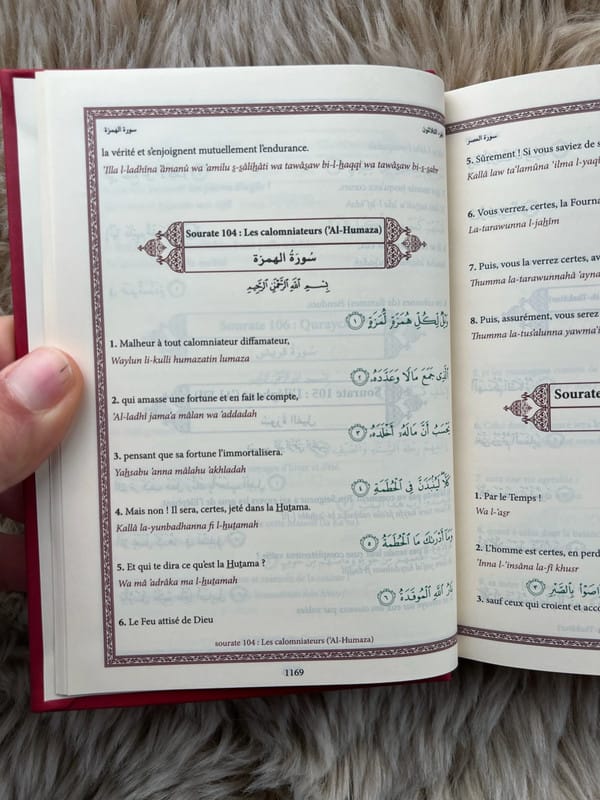 سورة الهمزة
الثلاثون
la vérité et s'enjoignent mutuellement l'endurance.
'Illa l-ladhîna 'âmanû wa 'amilu ṣ-ṣâliḥâti wa tawâṣaw bi-l-ḥaqqi wa tawâṣaw bi-ṣ-ṣabr
Sourate 104 : Les calomniateurs ('Al-Humaza)
سُورَةُ الهمزة
بِسْمِ اللَّهِ الرَّحْمَٰنِ الرَّحِيمِ
وَيْلٌ لِكُلِّ هُمَزَةٍ لُمَزَةٍ ١
1. Malheur à tout calomniateur diffamateur,
Waylun li-kulli humazatin lumaza
الَّذِى جَمَعَ مَالًا وَعَدَّدَهُ ٢
2. qui amasse une fortune et en fait le compte,
'Al-ladhi jama'a mâlan wa 'addadah
يَحْسَبُ أَنَّ مَالَهُ أَخْلَدَهُ ٣
3. pensant que sa fortune l'immortalisera.
Yaḥsabu 'anna mâlahu 'akhladah
كَلَّا لَيُنْبَذَنَّ فِى الْحُطَمَةِ ٤
4. Mais non ! Il sera, certes, jeté dans la Huṭama.
Kallâ la-yunbadhanna fi l-ḥuṭamah
وَمَا أَدْرَىٰكَ مَا الْحُطَمَةُ ٥
5. Et qui te dira ce qu'est la Huṭama ?
Wa mâ 'adrâka ma l-ḥuṭamah
نَارُ اللَّهِ الْمُوقَدَةُ ٦
6. Le Feu attisé de Dieu
sourate 104 : Les calomniateurs ('Al-Humaza)
1169
سورة العصر
5. Sûrement ! Si vous saviez de s
Kallâ law ta'lamûna 'ilma l-yaqî
6. Vous verrez, certes, la Fourna
La-tarawunna l-jaḥîm
7. Puis, vous la verrez certes, av
Thumma la-tarawunnahâ 'ayna
8. Puis, assurément, vous serez
Thumma la-tus'alunna yawma'i
Sourate
1. Par le Temps !
Wa l-'aṣr
2. L'homme est certes, en perd
'Inna l-'insâna la-fî khusr
بِالصَّبْرِ ٣
3. sauf ceux qui croient et acco